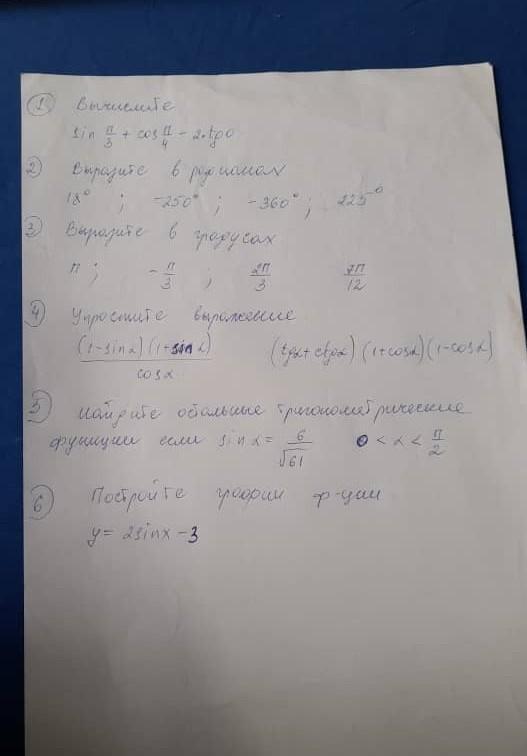 1 Вычислите
sin π/3 + cos π/4 - 2·tg0
2 Выразите в радианах
18° ; -250° ; -360° ; 225°
3 Выразите в градусах
π ; -π/3 ; 2π/3 7π/12
4 Упростите выражение
(1-sinα)(1+sinα)/cosα (tgα+ctgα)(1+cosα)(1-cosα)
5 Найдите остальные тригонометрические
функции если sinα = 6/√61 0 < α < π/2
6 Постройте график ф-ции
y = 2sinx - 3